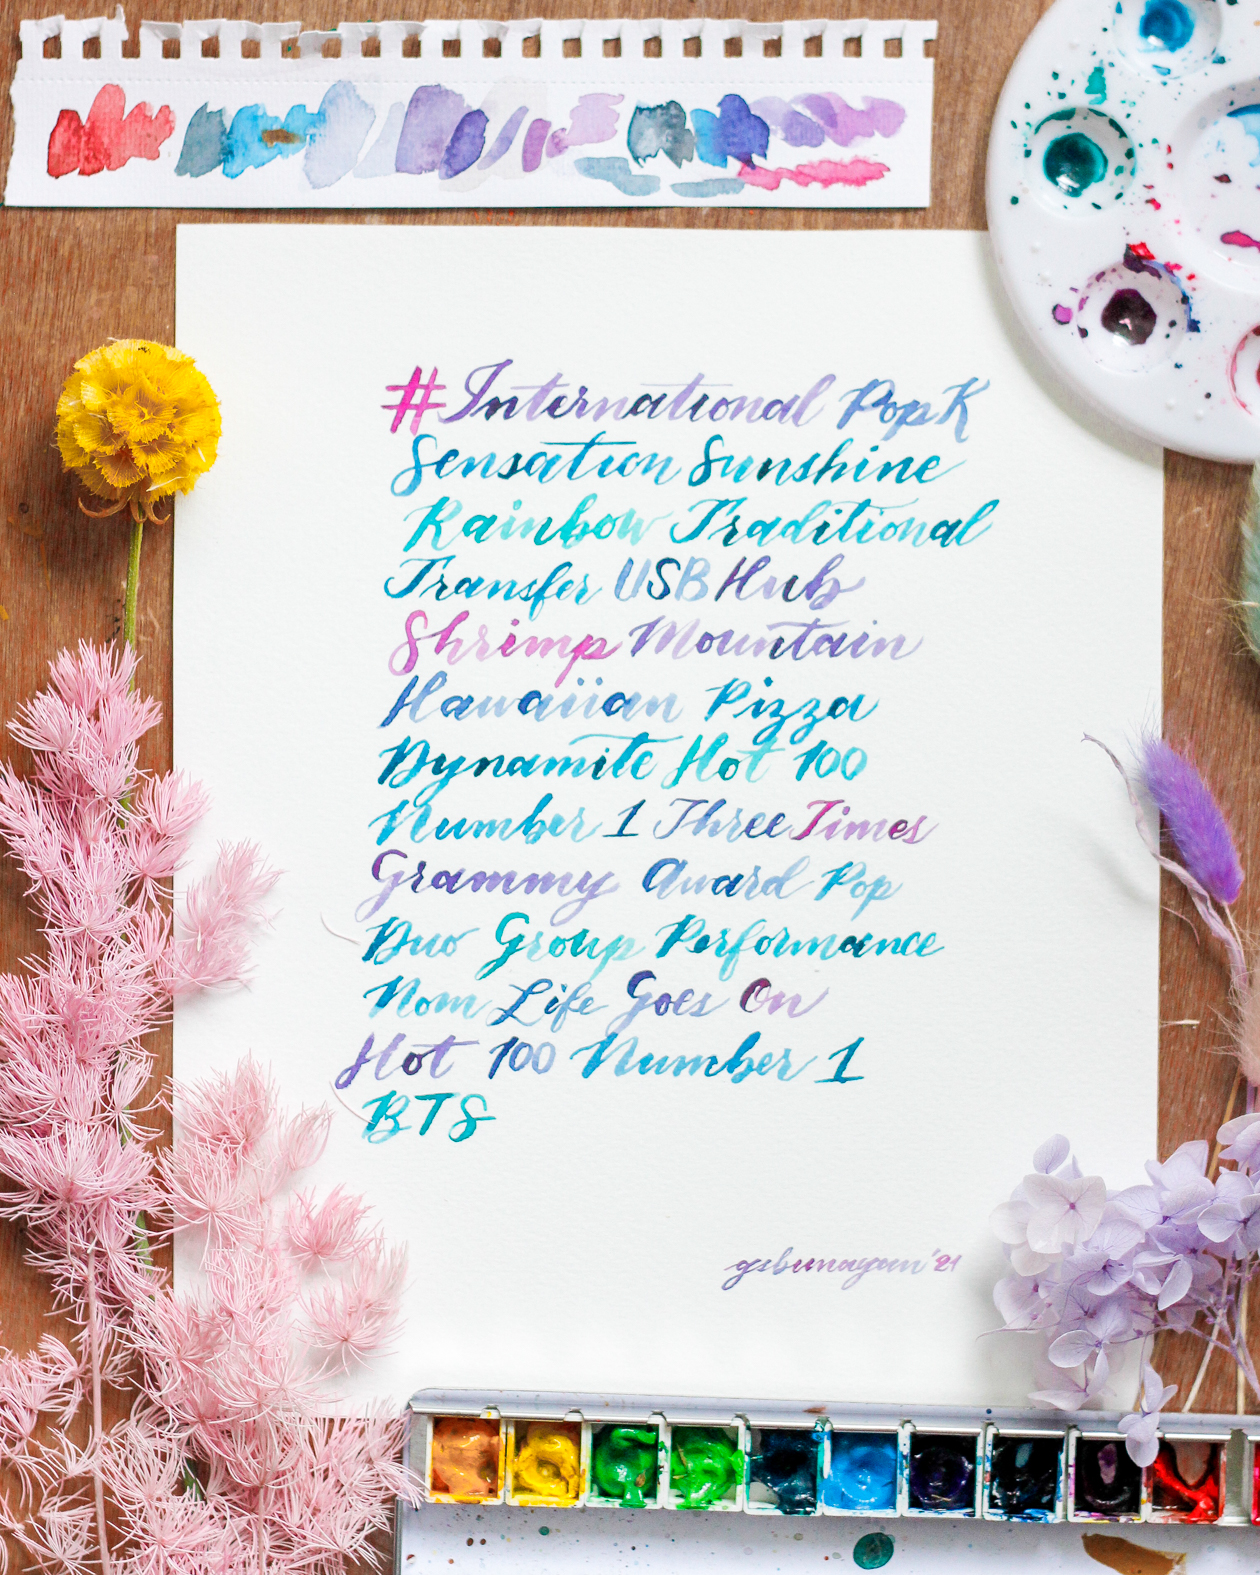 #International PopK
Sensation Sunshine
Rainbow Traditional
Transfer USB Hub
Shrimp Mountain
Hawaiian Pizza
Dynamite Hot 100
Number 1 Three Times
Grammy Award Pop
Duo Group Performance
Nom Life Goes On
Hot 100 Number 1
BTS
gsbunayan '21